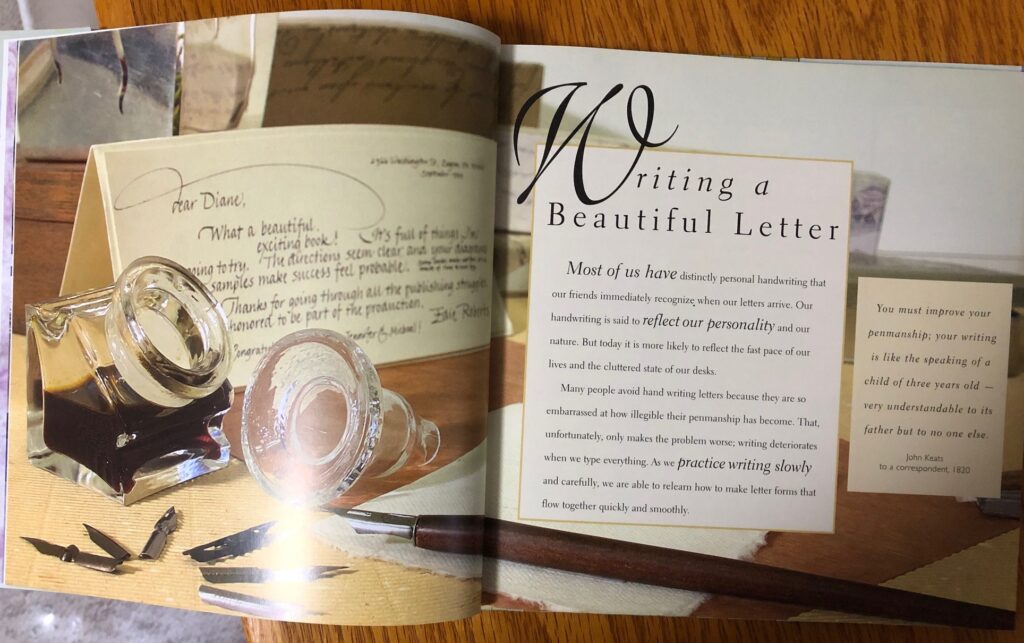 2966 Washington St., Eagan,
September
Dear Diane,
What a beautiful,
exciting book! It's full of things I'm
going to try. The directions seem clear and your
samples make success feel probable!
Thanks for going through all the publishing struggles
honored to be part of the production.
Jennifer & Michael!
Writing a
Beautiful Letter
Most of us have distinctly personal handwriting that
our friends immediately recognize when our letters arrive. Our
handwriting is said to reflect our personality and our
nature. But today it is more likely to reflect the fast pace of our
lives and the cluttered state of our desks.
Many people avoid hand writing letters because they are so
embarrassed at how illegible their penmanship has become. That,
unfortunately, only makes the problem worse; writing deteriorates
when we type everything. As we practice writing slowly
and carefully, we are able to relearn how to make letter forms that
flow together quickly and smoothly.
You must improve your
penmanship; your writing
is like the speaking of a
child of three years old —
very understandable to its
father but to no one else.
John Keats
to a correspondent, 1820